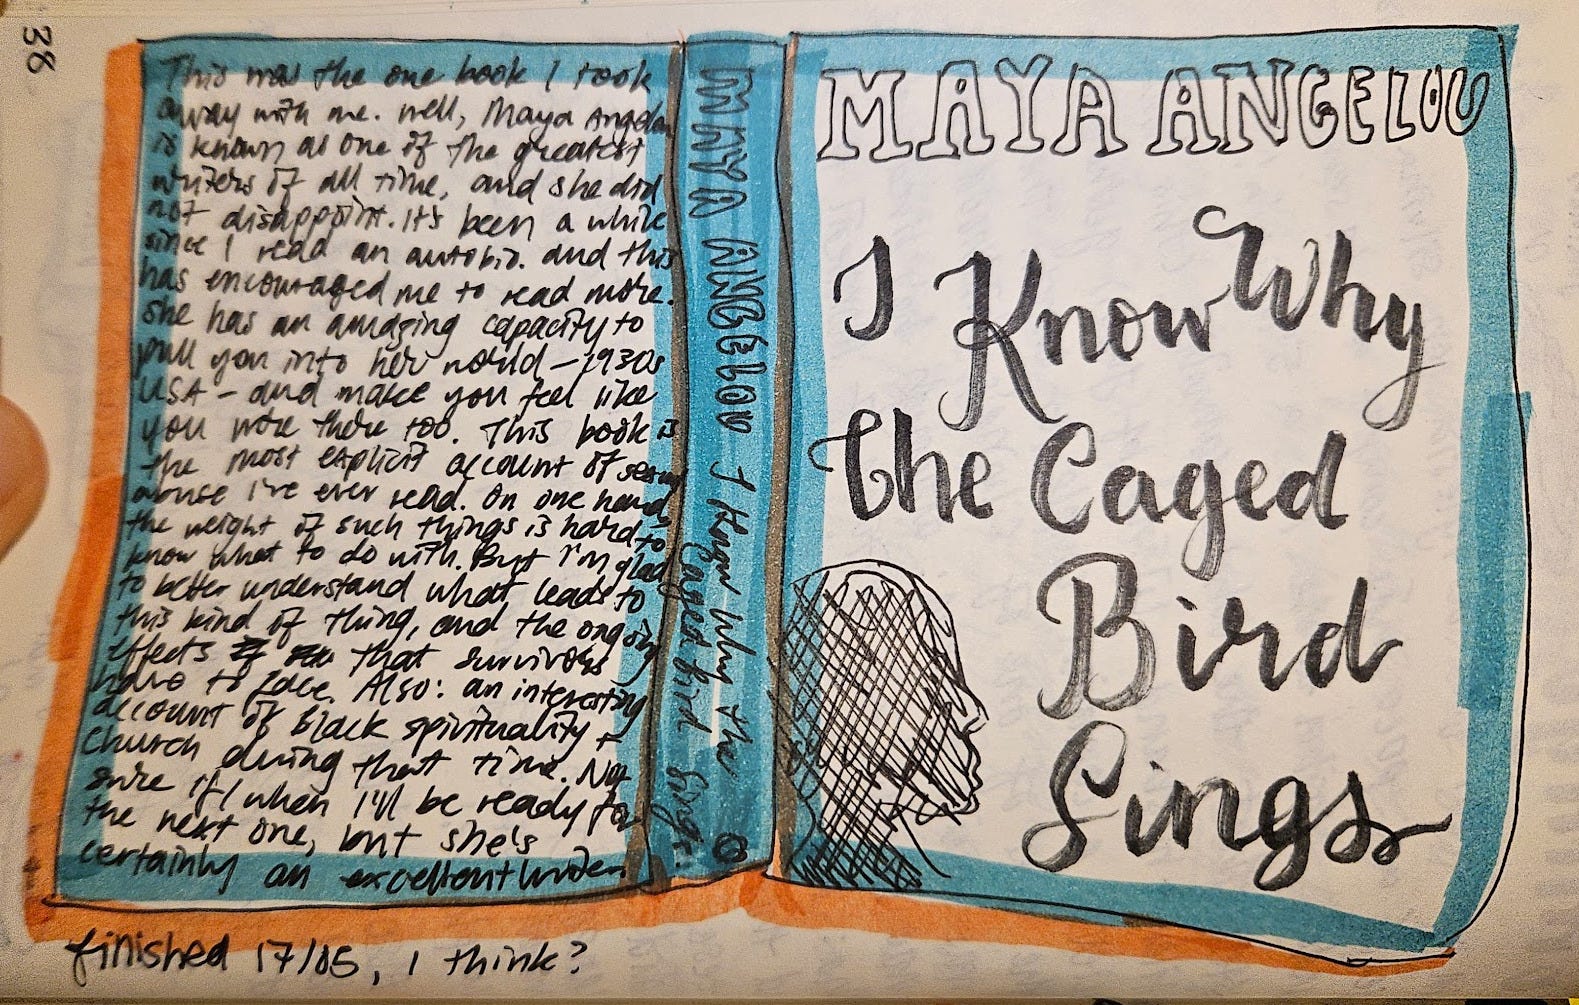 38
This was the one book I took
away with me. Well, Maya Angelou
is known as one of the greatest
writers of all time, and she did
not disappoint. It's been a while
since I read an autobio. and this
has encouraged me to read more.
She has an amazing capacity to
pull you into her world – 1930s
USA – and make you feel like
you were there too. This book is
the most explicit account of sexual
abuse I've ever read. On one hand,
the weight of such things is hard to
know what to do with. But I'm glad
to better understand what leads to
this kind of thing, and the ongoing
effects that survivors
have to face. Also: an interesting
account of Black spirituality +
church during that time. Not
sure if/when I'll be ready for
the next one, but she's
certainly an excellent writer.
finished 17/05, I think?
MAYA ANGELOU I Know Why the
Caged Bird Sings.
MAYA ANGELOU
I Know Why
The Caged
Bird
Sings